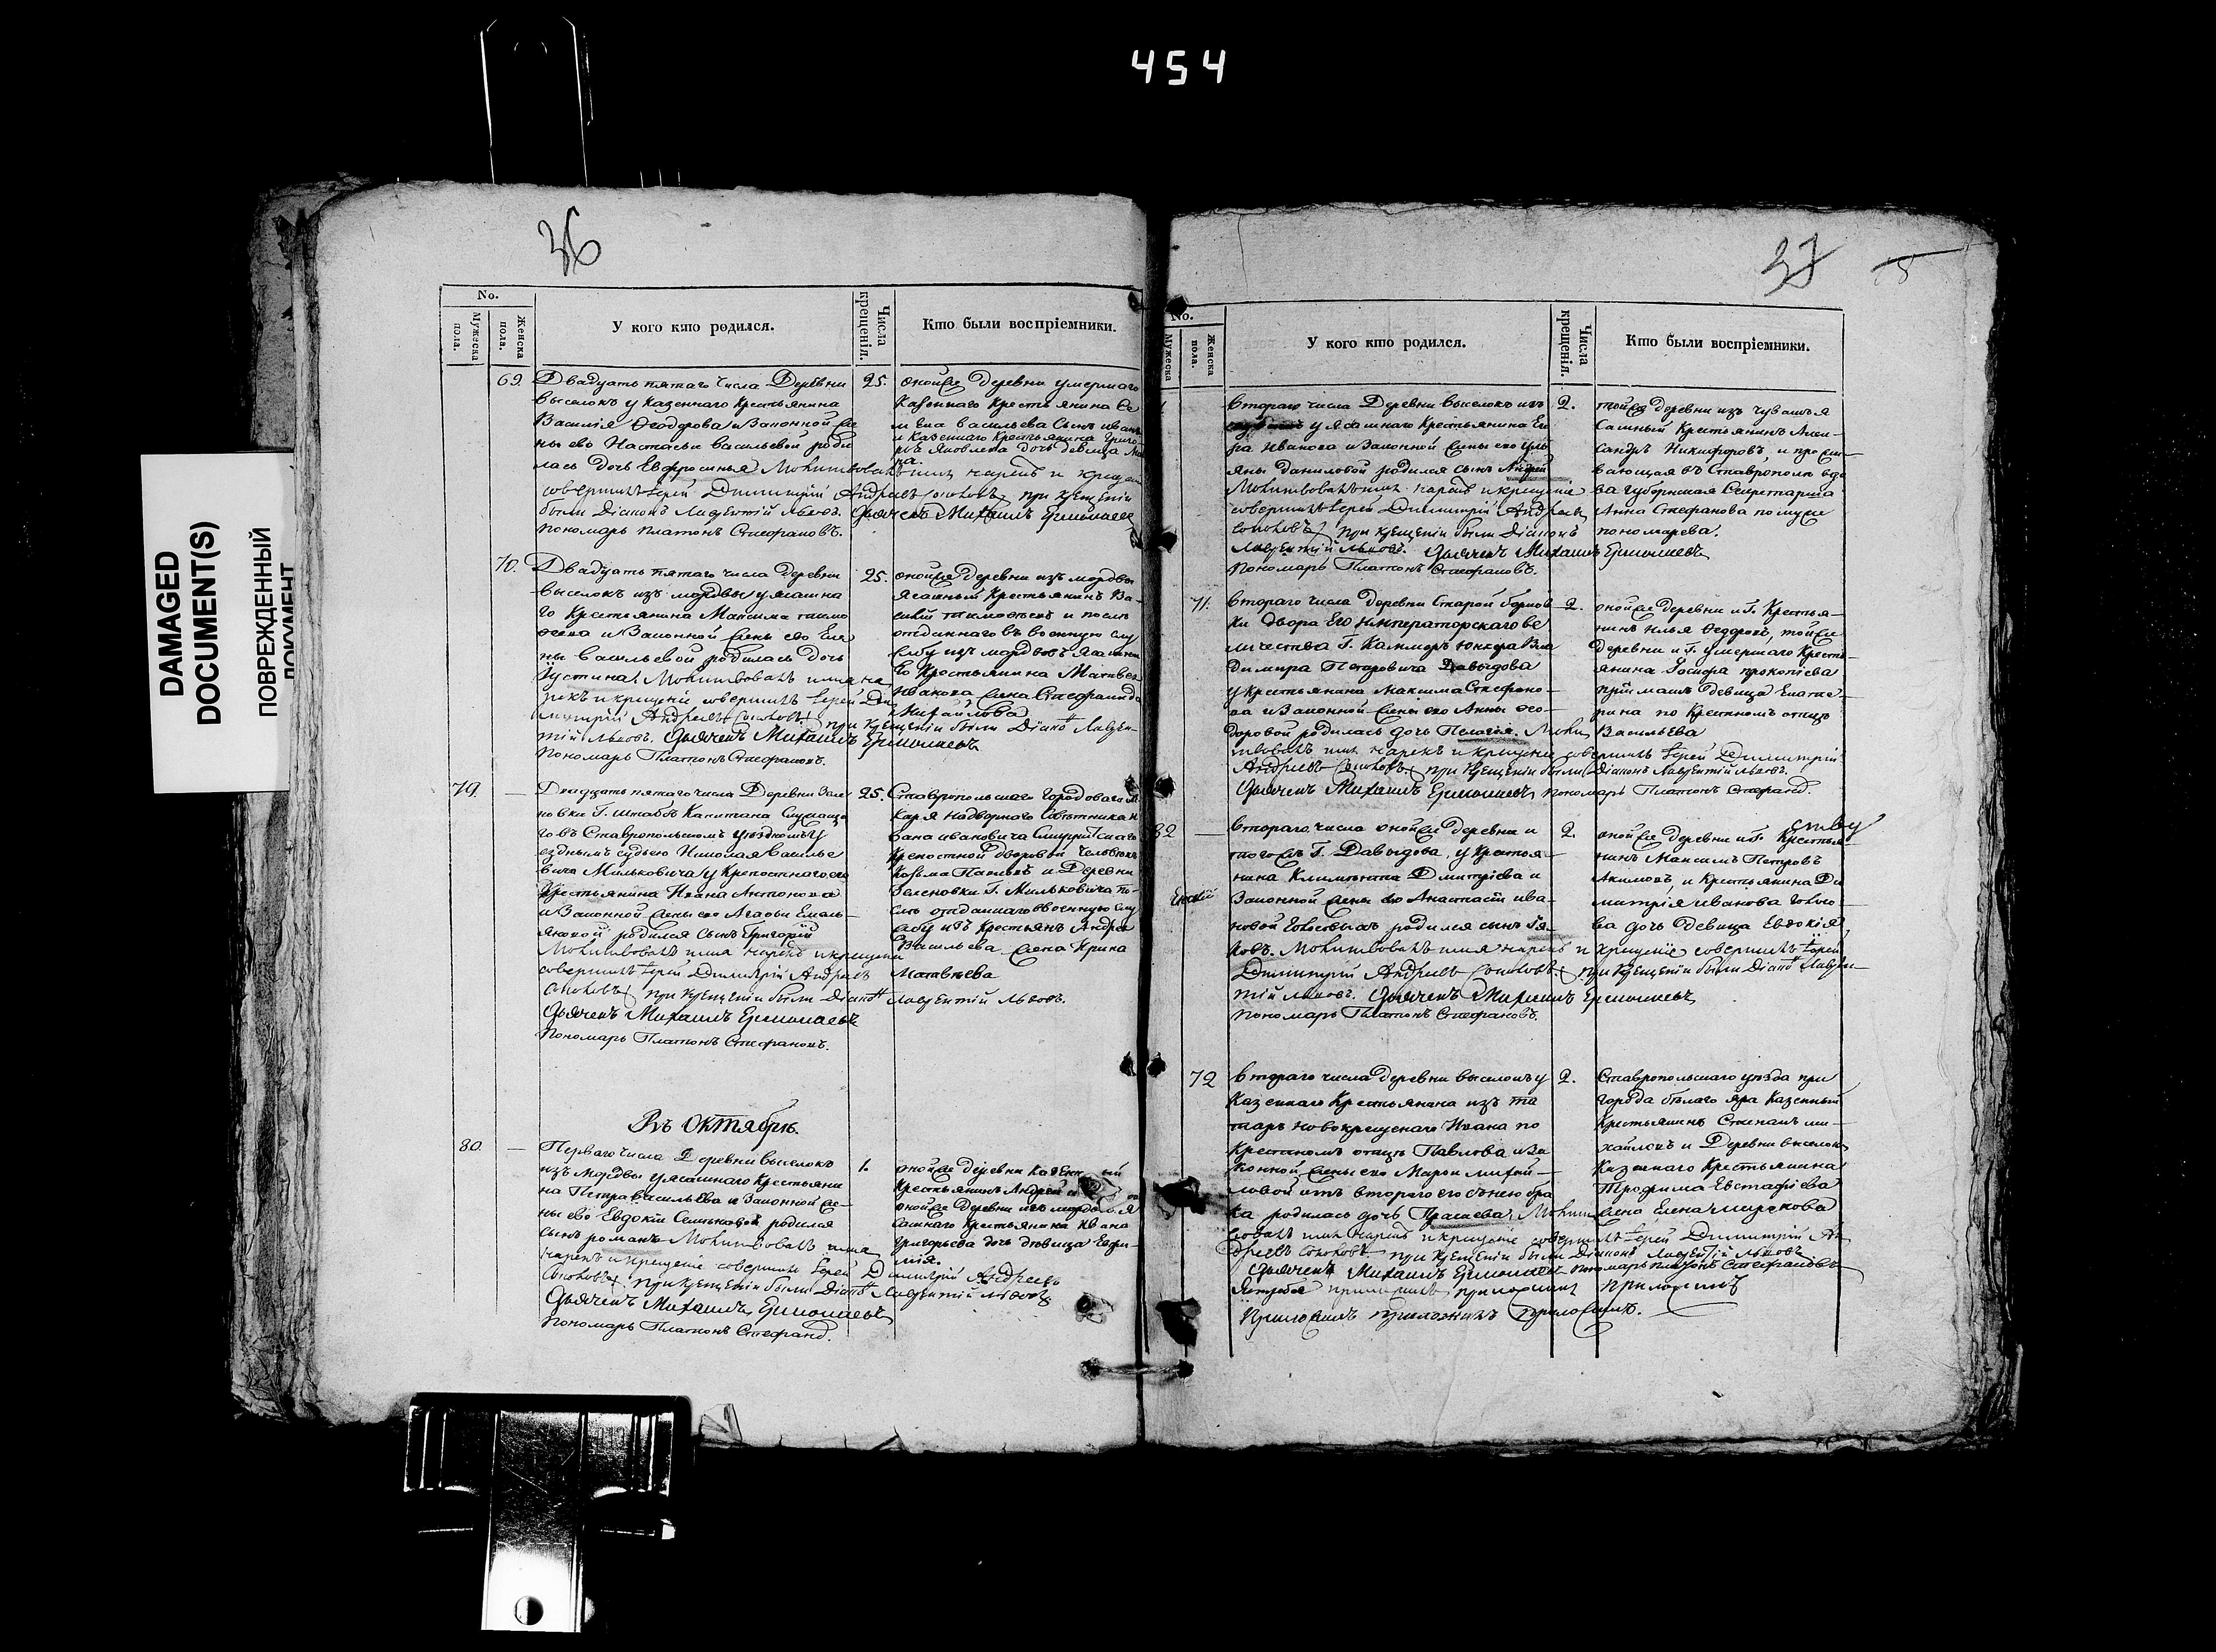 454
DAMAGED
DOCUMENT(S)
ПОВРЕЖДЕННЫЙ
ДОКУМЕНТ
36
No.
Мужеска пола.
Женска пола.
У кого кто родился.
Числа крещенія.
Кто были воспріемники.
69. Двадцать пятаго числа Деревни
выселокъ у казеннаго Крестьянина
Василія Ѳеодорова и Законной же
ны ево Настасьи Васильевой роди
лась дочь Евфросинья Молитвовалъ имя нарекъ и крещение
совершилъ Іерей Димитрій Андреевъ при крещеніи
были Діаконъ Лаврентій Львовъ. Дьячекъ Михаилъ Ермолаевъ
Пономарь Платонъ Стефановъ.
25. оной же деревни умершаго
казеннаго Крестьянина
Васильева Сынъ Иванъ
и Казеннаго Крестьянина Григо
Яковлева дочь девица
70. Двадцать пятаго числа деревни
выселокъ изъ мордвы у ясашна
го Крестьянина Максима тимо
феева и Законной жены ево Еле
ны Васильевой родилась дочь
Устина. Молитвовалъ имя на
рекъ и крещеніе совершилъ Іерей Ди
митрій Андреевъ при крещеніи были Діаконъ Лаврен
тій Львовъ. Дьячекъ Михаилъ Ермолаевъ
Пономарь Платонъ Стефановъ.
25. оной же деревни изъ мордвы
Ясашный Крестьянинъ Ва
силій тимофеевъ и после
отданнаго въ военную слу
жбу изъ мордвовъ Ясашна
го Крестьянина Матвея
Иванова жена Стефанида
Михайлова
79. Двадцать пятаго числа Деревни Зеле
новки Г. штабсъ Капитана Служаща
го въ Ставропольскомъ уездномъ у
езднымъ судьею Николая Василье
вича Мильковича у Крепостнаго его
Крестьянина Ивана Антонова
и Законной жены ево Агафьи Емель
яновой родился сынъ Григорій
Молитвовалъ имя нарекъ и крещение
совершилъ Іерей Димитрій Андреевъ
при крещеніи были Діаконъ Лаврентій Львовъ.
Дьячекъ Михаилъ Ермолаевъ
Пономарь Платонъ Стефановъ.
25. Ставропольскаго Городоваго ле
каря Надворнаго Советника И
вана Ивановича
Крепостной дворовой человекъ
Козьма Павловъ и Деревни
Зеленовки Г. Мильковича по
сле отданнаго в военную слу
жбу изъ Крестьянъ Андрея
Васильева жена Ирина
Матвеева
Въ Октябрѣ.
80. Перваго числа Деревни выселокъ
изъ мордвы у ясашнаго Крестьяни
на Петра Васильева и Законной же
ны ево Евдокіи Семеновой родился
сынъ романъ Молитвовалъ имя
нарекъ и крещение совершилъ Іерей Димитрій Андреевъ
при крещеніи были Діаконъ Лаврентій Львовъ
Дьячекъ Михаилъ Ермолаевъ
Пономарь Платонъ Стефановъ.
1. оной же деревни казенный
Крестьянинъ Андрей
оной же деревни изъ мордвы я
сашнаго Крестьянина Ивана
Григорьева дочь девица Евфи
мія
37
No.
Мужеска
Женска пола.
У кого кто родился.
Числа крещенія.
Кто были воспріемники.
Втораго числа Деревни выселокъ изъ
у ясашнаго Крестьянина Его
ра Иванова и Законной жены его Уль
яны даниловой родился сынъ Андрей
Молитвовалъ имя нарекъ и крещение
совершилъ Іерей Димитрій Андреевъ
при крещеніи были Діаконъ
Лаврентій Львовъ. Дьячекъ Михаилъ Ермолаевъ
Пономарь Платонъ Стефановъ.
2. той же деревни изъ чувашъ я
сашный Крестьянинъ Алек
сандръ Никифоровъ, и прожи
вающая въ Ставрополе вдо
ва Губернская Секретарша
Анна Стефанова по муже
пономарева.
71. Втораго числа деревни Старой Борков
ки двора Его Императорскаго ве
личества Г. Каммеръ Юнкера Вла
димира Петровича Давыдова
у Крестьянина Максима Стефано
ва и Законной жены его Анны Ѳео
доровой родилась дочь Пелагія. Моли
твовалъ имя нарекъ и крещение совершилъ Іерей Димитрій
Андреевъ при крещеніи были Діаконъ Лаврентій Львовъ.
Дьячекъ Михаилъ Ермолаевъ Пономарь Платонъ Стефановъ.
2. оной же деревни и Г. Крестья
нинъ Илья Ѳедоровъ, той же
деревни и Г. умершаго Кресть
янина Іосифа прокопіева
пріймашъ девица Екате
рина по Крестномъ отце
Васильева
82 Втораго числа оной же деревни и
того жъ Г. Давыдова, у Крестья
нина Климента Дмитріева и
Законной жены ево Анастасіи Ива
новой родился сынъ Іа
ковъ. Молитвовалъ имя нарекъ и крещеніе совершилъ Іерей
Димитрій Андреевъ при крещеніи были Діаконъ Лаврен
тій Львовъ. Дьячекъ Михаилъ Ермолаевъ
Пономарь Платонъ Стефановъ.
2. оной же деревни и Г. Крестья
нинъ Максимъ Петровъ
Акимовъ, и Крестьянина Ди
митрія Иванова
ва дочь девица Евдокія
72 Втораго числа деревни выселокъ у
Казеннаго Крестьянина изъ та
таръ новокрещенаго Ивана по
Крестномъ отце Павлова и За
конной жены его Марьи михай
ловой отъ втораго его съ нею бра
ка родилась дочь Прасковья Молит
вовалъ имя нарекъ и крещеніе совершилъ Іерей Димитрій Ан
дреевъ при крещеніи были Діаконъ Лаврентій Львовъ
Дьячекъ Михаилъ Ермолаевъ Пономарь Платонъ Стефановъ
2. Ставропольскаго уезда при
города белаго яра Казенный
Крестьянинъ Степанъ ми
хайловъ и Деревни выселокъ
Казеннаго Крестьянина
Трофима Евстафіева
жена Елена
приложилъ
приложилъ